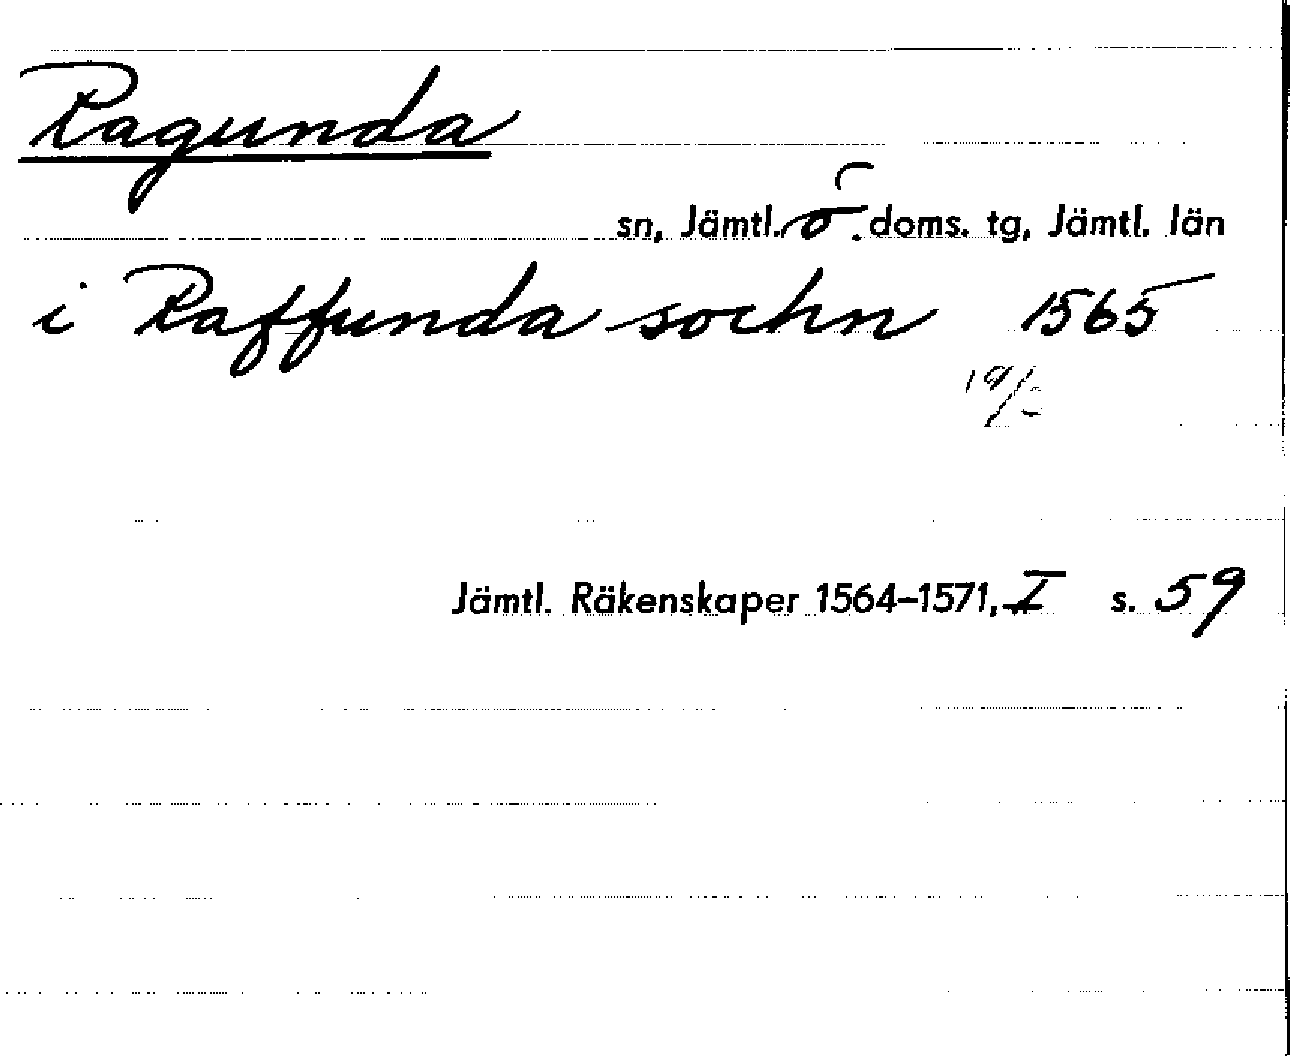 Ragunda
sn, Jämtl. ö. doms. tg, Jämtl. län
i Raffunda sochn 1565
Jämtl. Räkenskaper 1564–1571, I s. 59